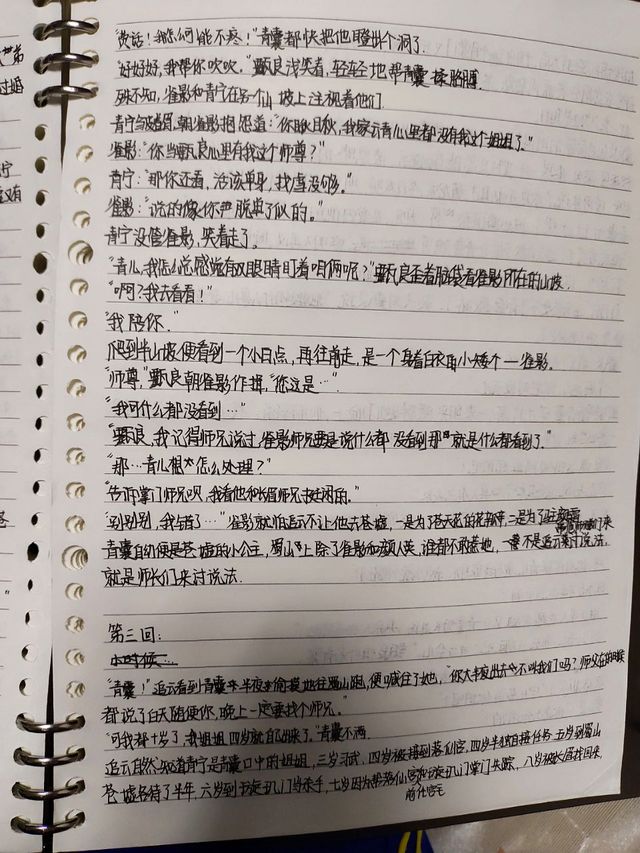 "废话！我怎么可能不疼！"青囊都快把他瞪出个洞了.
"好好好,我帮你吹吹."甄良浅笑着,轻轻地帮青囊揉胳膊.
殊不知,雀影和青宁在另个山坡上注视着他们.
青宁朝雀影抱怨道:"你瞅瞅,我家云青心里都没有我这个姐姐了."
雀影:"你当甄良心里有我这个师尊?"
青宁:"那你还看,活该单身,找虐没够."
雀影:"说的像你脱单了似的."
青宁没管雀影,笑着走了.
"青儿,我怎么总感觉有双眼睛盯着咱俩呢?"甄良歪着脑袋看雀影所在的山坡.
"啊?我去看看!"
"我陪你."
爬到半山坡便看到一个小白点,再往前走,是一个身着白衣的小矮个一雀影.
"师尊,"甄良朝雀影作揖,"您这是…"
"我可什么都没看到…"
"甄良,我记得师兄说过,雀影师兄要是说什么都没看到那就是什么都看到了."
"那…青儿想怎么处理?"
"告诉掌门师兄呗,我看他和长眉师兄挺闲的."
"别别别,我错了…"雀影就怕追云不让他去苍墟,一是为了苍天花的花 二是为了 们来
青囊自幼便是苍墟的小公主,蜀山上除了雀影和 人类,谁都不敢惹她,一 不是追云来讨说法,
就是师长们来讨说法.
第三回:
小时候…
"青囊!"追云看到青囊半夜偷摸地往蜀山跑,便喊住了她,"你大半夜出去 不叫我们吗?师父在的时候
都说了白天随便你,晚上一定要找个师兄."
"可我都十岁了,我姐姐四岁就自己睡了."青囊不满
追云自然知道青宁是青囊口中的姐姐,三岁习武,四岁被接到落仙宫,四岁半独自接任务,五岁到蜀山
苍墟各待了半年,六岁到玄旋玑门当杀手,七岁因为帮落仙宫 旋玑门掌门失踪,八岁被 找回来,
前任宫主